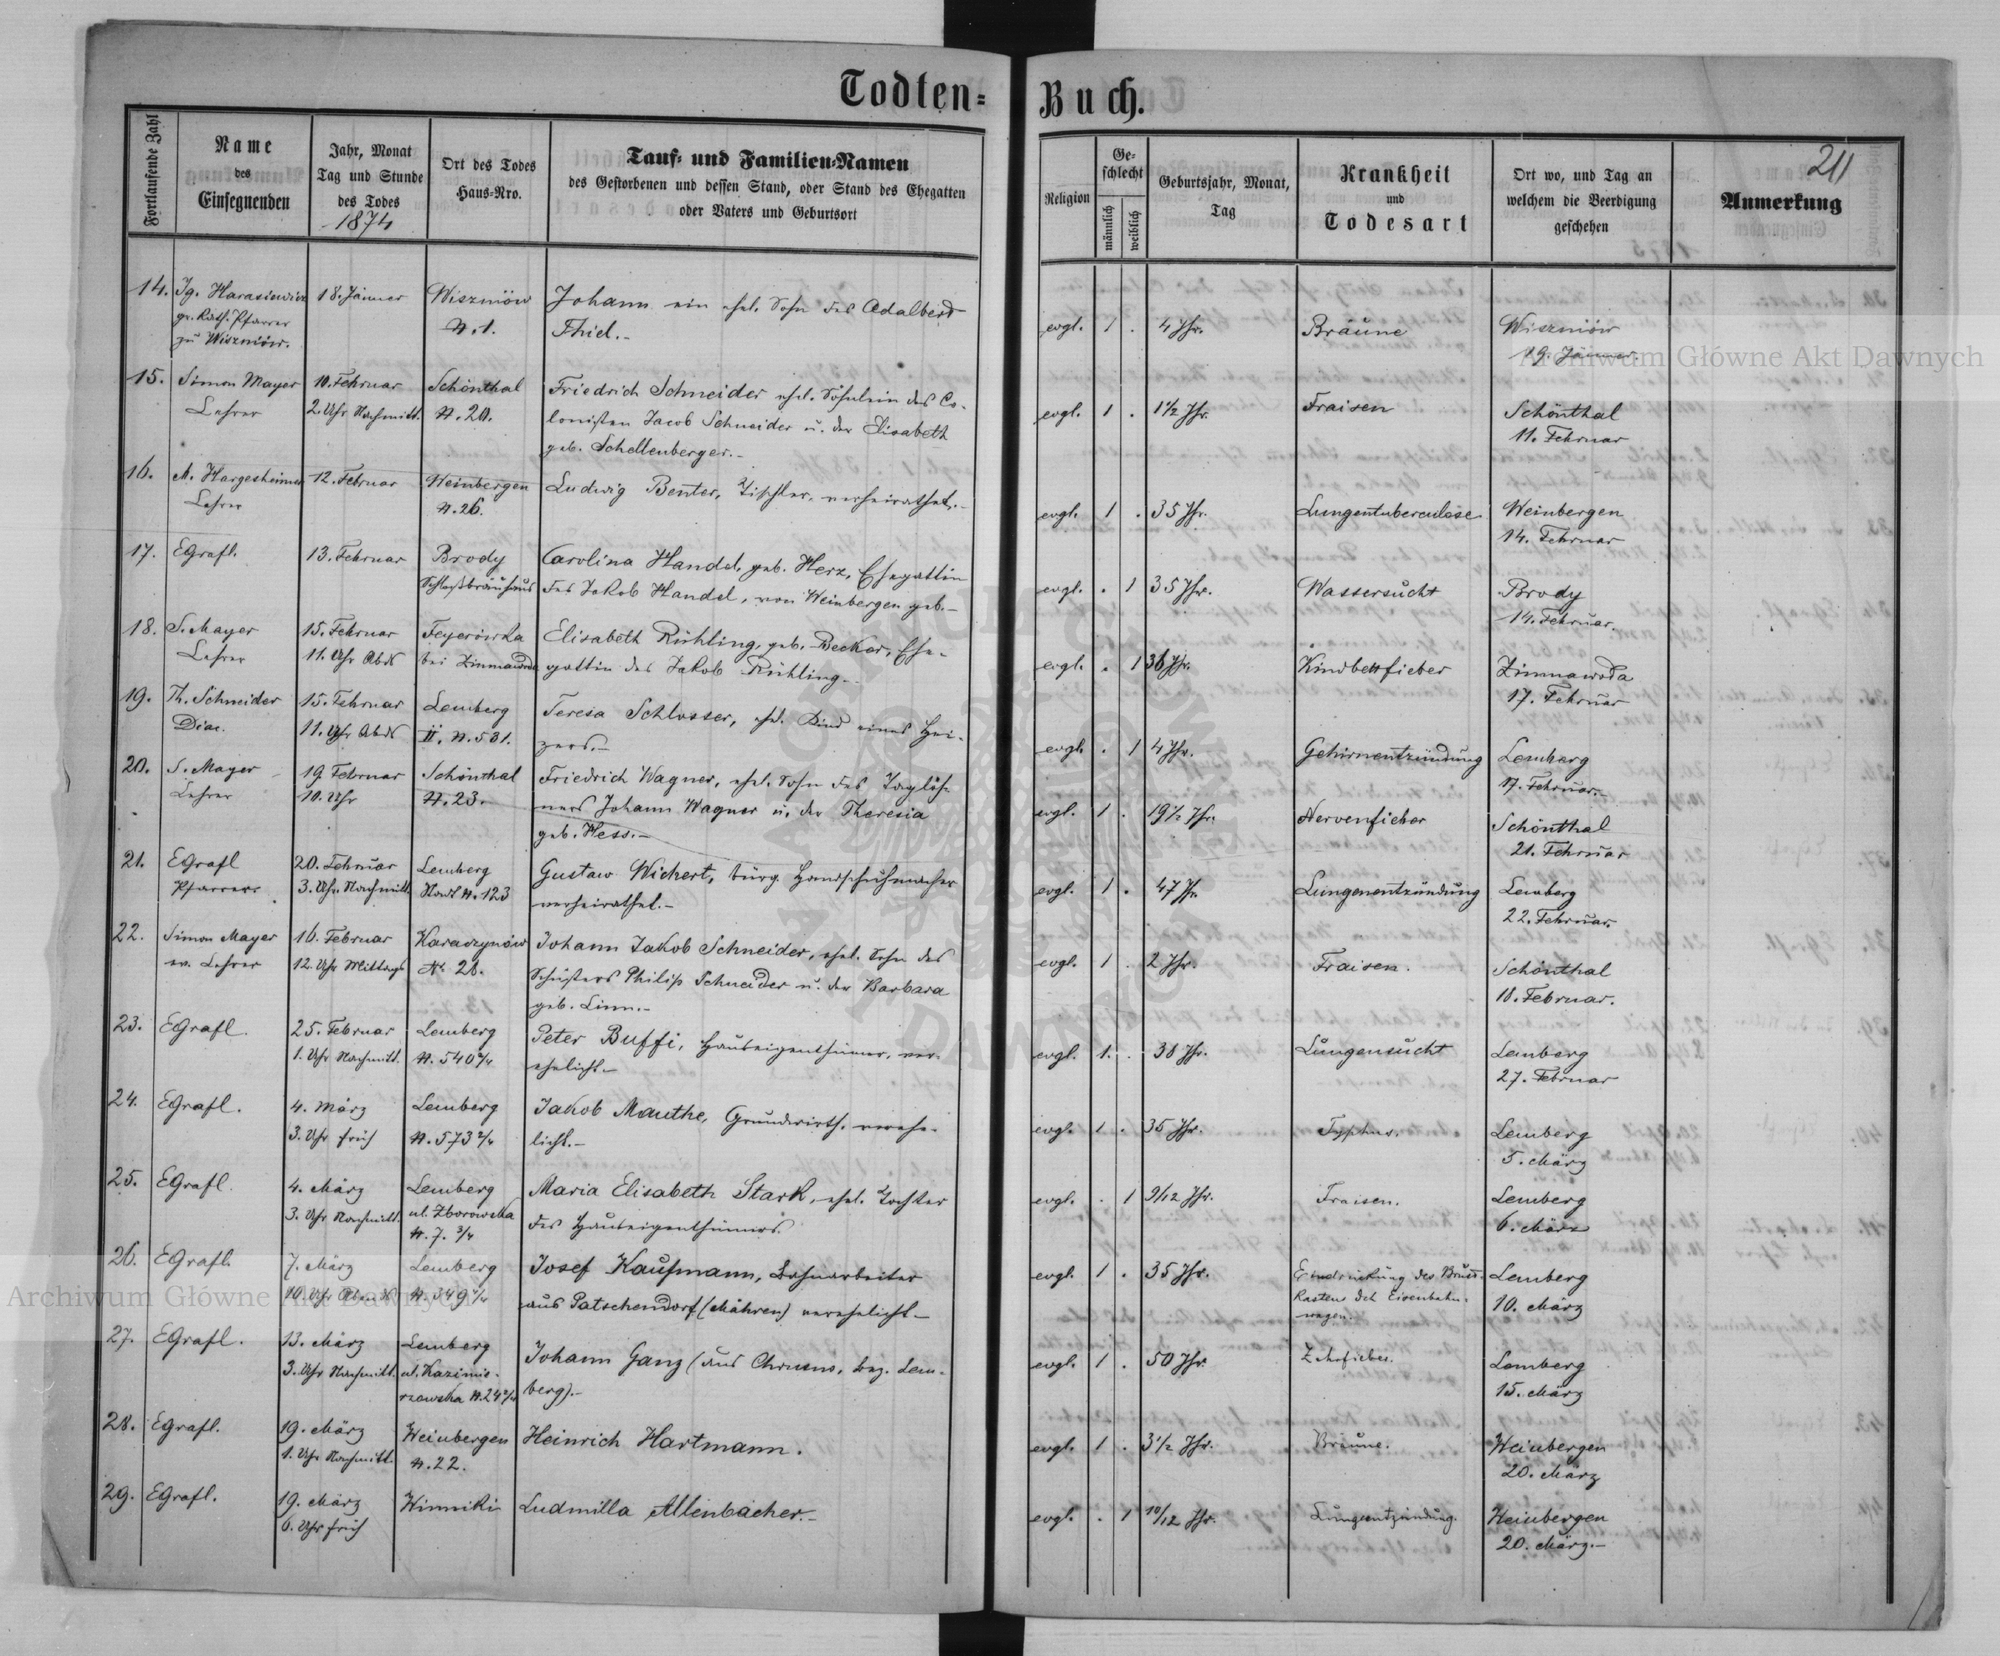 Todten-Buch.
211
Fortlaufende Zahl
Name
des
Einsegnenden
Jahr, Monat
Tag und Stunde
des Todes
1874
Ort des Todes
Haus-Nro.
Tauf- und Familien-Namen
des Gestorbenen und dessen Stand, oder Stand des Ehegatten
oder Vaters und Geburtsort
Religion
Ge-
schlecht
männlich
weiblich
Geburtsjahr, Monat,
Tag
Krankheit
und
Todesart
Ort wo, und Tag an
welchem die Beerdigung
geschehen
Anmerkung
14. Ig. Harasiewicz 18. Jänner Wiszniów Johann ein ehel. Sohn des Adalbert
gr. kath. Pfarrer N. 1. Thiel.-
zu Wiszniów.
evgl. 1 . 4 Jhr. Bräune Wiszniów
19. Jänner
15. Simon Mayer 10. Februar Schönthal Friedrich Schneider ehel. Söhnlein des Co-
Lehrer 2. Uhr Nachmitt. N. 20. lonisten Jacob Schneider u. der Elisabeth
geb. Schellenberger.-
evgl. 1 . 1 1/2 Jhr. Fraisen Schönthal
11. Februar
16. A. Hargesheimer 12. Februar Weinbergen Ludwig Benter, Tischler, verheirathet.-
Lehrer N. 26.
evgl. 1 . 35 Jhr. Lungentuberculose Weinbergen
14. Februar
17. EGrafl. 13. Februar Brody Carolina Handel, geb. Herz, Ehegattin
Schloßbräuhaus des Jakob Handel, von Weinbergen geb.-
evgl. . 1 35 Jhr. Wassersucht Brody
14. Februar.
18. S. Mayer 15. Februar Feyerówka Elisabeth Rühling, geb. Becker, Ehe-
Lehrer 11. Uhr Abds bei Zimnawoda gattin des Jakob Rühling.-
evgl. . 1 36 Jhr. Kindbettfieber Zimnawoda
17. Februar
19. Th. Schneider 15. Februar Lemberg Teresa Schlosser, ehel. Kind eines Hei-
Diac. 11. Uhr Abds II. N. 531. zers.-
evgl. . 1 4 Jhr. Gehirnentzündung Lemberg
17. Februar.
20. S. Mayer 19. Februar Schönthal Friedrich Wagner, ehel. Sohn des Taglöh-
Lehrer 10. Uhr N. 23. ners Johann Wagner u. der Theresia
geb. Hess.-
evgl. 1 . 19 1/2 Jhr. Nervenfieber Schönthal
21. Februar
21. EGrafl 20. Februar Lemberg Gustaw Wichert, bürg. Handschuhmacher
Pfarrer 3. Uhr Nachmitt. Stadt N. 123 verheirathet.-
evgl. 1 . 47 Jhr. Lungenentzündung Lemberg
22. Februar.
22. Simon Mayer 16. Februar Karaczynów Johann Jakob Schneider, ehel. Sohn des
ev. Lehrer 12. Uhr Mittags N. 28. Schusters Philip Schneider u. der Barbara
geb. Linn.-
evgl. 1 . 2 Jhr. Fraisen. Schönthal
18. Februar.
23. EGrafl. 25. Februar Lemberg Peter Buffi, Hauseigenthümer, ver-
1. Uhr Nachmitt. N. 540 2/4 ehelicht.-
evgl. 1. . 38 Jhr. Lungensucht Lemberg
27. Februar
24. EGrafl. 4. März Lemberg Jakob Mauthe, Grundwirth, verehe-
3. Uhr früh N. 573 2/4 licht.-
evgl. 1 . 35 Jhr. Typhus. Lemberg
5. März
25. EGrafl. 4. März Lemberg Maria Elisabeth Stark, ehel. Tochter
3. Uhr Nachmitt. ul. Zborowska des Hauseigenthümers.
N. 7. 3/4
evgl. . 1 9/12 Jhr. Fraisen. Lemberg
6. März
26. EGrafl. 7. März Lemberg Josef Kaufmann, Bahnarbeiter
10. Uhr Abends N. 349 2/4 aus Patschendorf (Mähren) verehelicht.-
evgl. 1 . 35 Jhr. Eindrückung des Brust- Lemberg
kastens dch Eisenbahn- 10. März
wagen.
27. EGrafl. 13. März Lemberg Johann Ganz (aus Chrusno, bez. Lem-
3. Uhr Nachmitt. ul. Kazimie- berg).-
rzowska N. 24 2/4
evgl. 1 . 50 Jhr. Zehrfieber. Lemberg
15. März
28. EGrafl. 19. März Weinbergen Heinrich Hartmann.
1. Uhr Nachmitt. N. 22.
evgl. 1 . 3 1/2 Jhr. Bräune. Weinbergen
20. März
29. EGrafl. 19. März Winniki Ludmilla Allenbacher.-
6. Uhr früh
evgl. . 1 10/12 Jhr. Lungenentzündung. Weinbergen
20. März.-
Archiwum Główne Akt Dawnych
Archiwum Główne Akt Dawnych